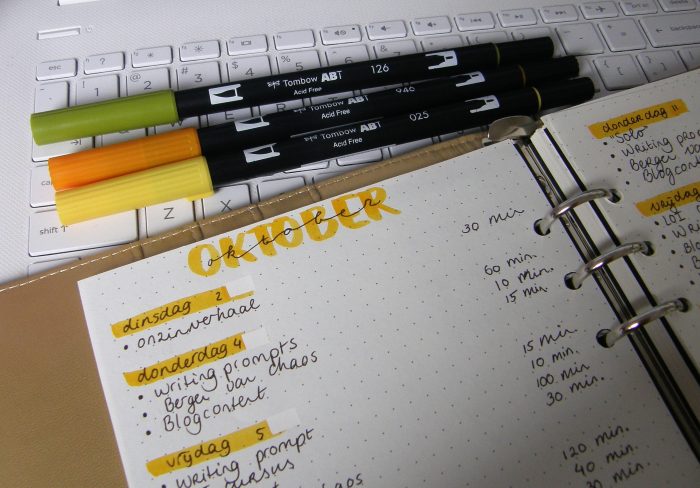 Tombow ABT 126
Acid Free
Tombow ABT 946
Acid Free
Tombow ABT 025
Acid Free
esc
shift
Z
X
OKTOBER
oktober
dinsdag 2
• onzinverhaal 30 min
donderdag 4
• writing prompts 60 min.
• Berger van chaos 10 min.
• Blogcontent 15 min.
vrijdag 5
• Writing prompt 15 min.
cursus 10 min.
chaos 100 min.
30 min.
120 min.
40 min.
30 min.
donderdag 11
• Solo
• Writing
• Berger
• Blogcontent
vrijdag
• LOI